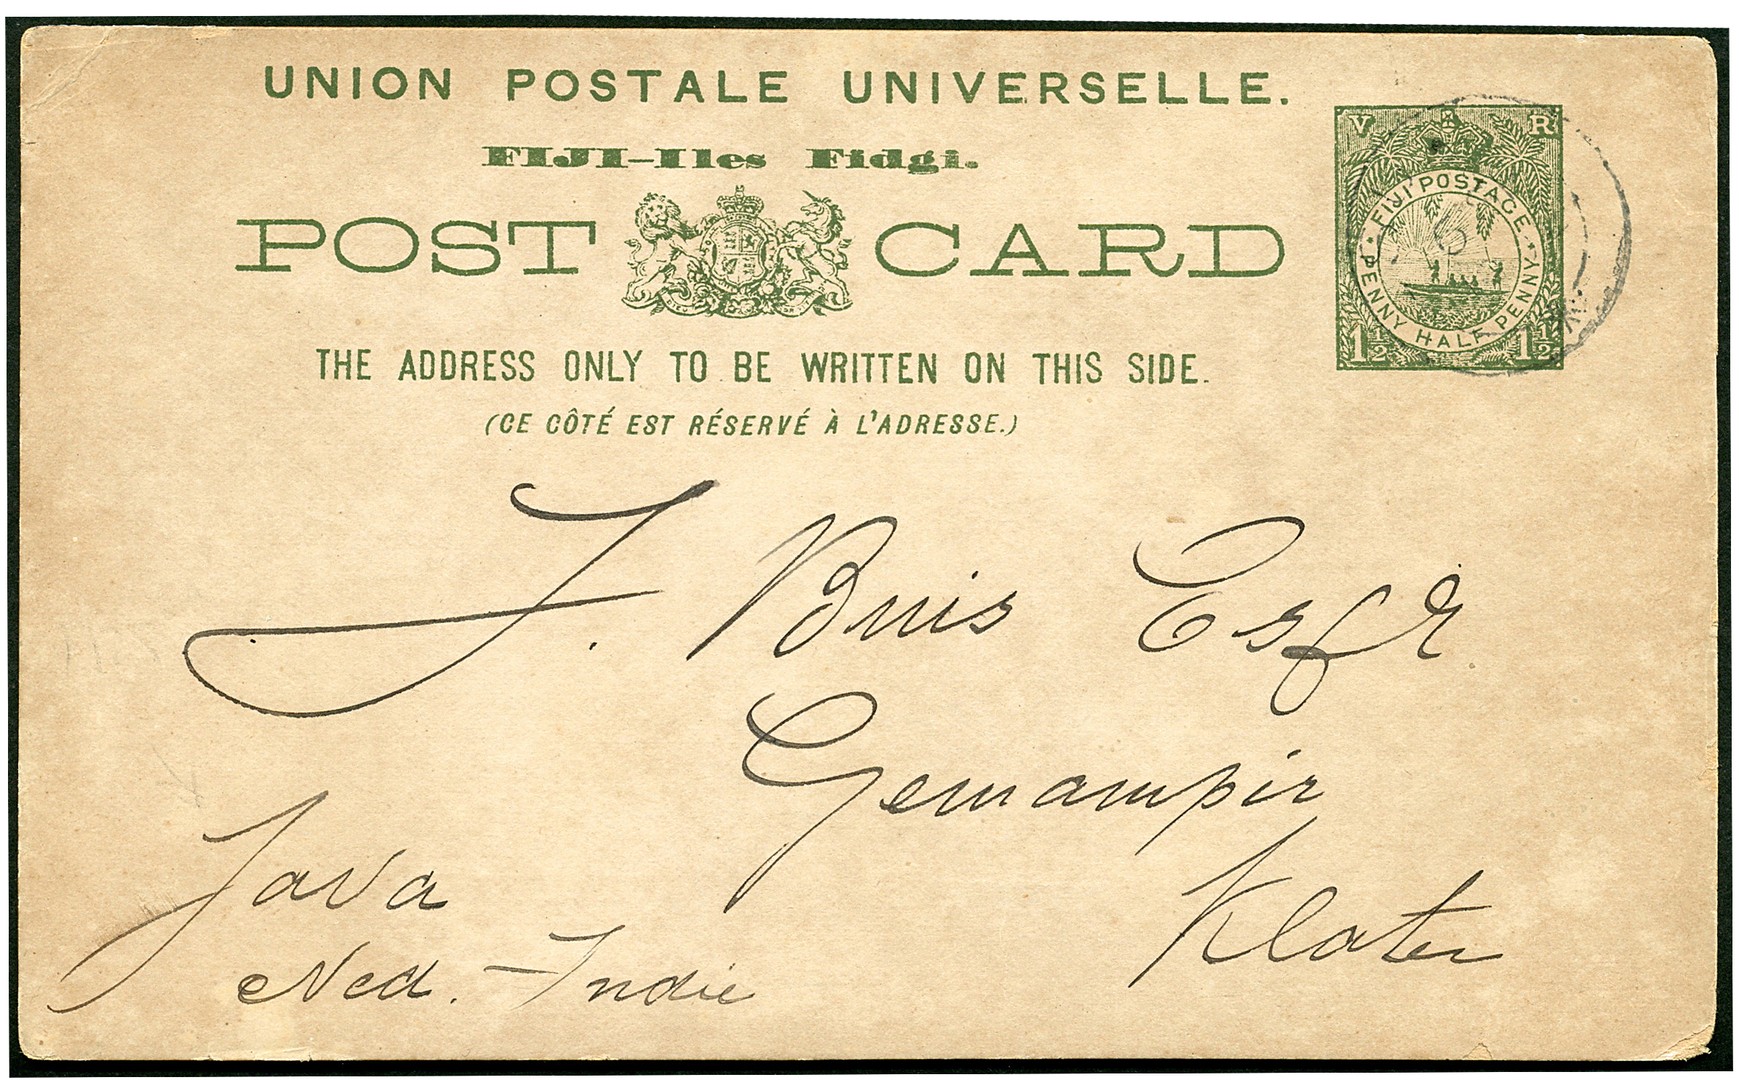 UNION POSTALE UNIVERSELLE.
FIJI–Iles Fidgi.
POST CARD
V R
FIJI POSTAGE
PENNY HALF PENNY
1½ 1½
THE ADDRESS ONLY TO BE WRITTEN ON THIS SIDE.
(CE CÔTÉ EST RÉSERVÉ À L'ADRESSE.)
J. Buis Esqr
Gemampir
Klaten
Java
Ned. Indie